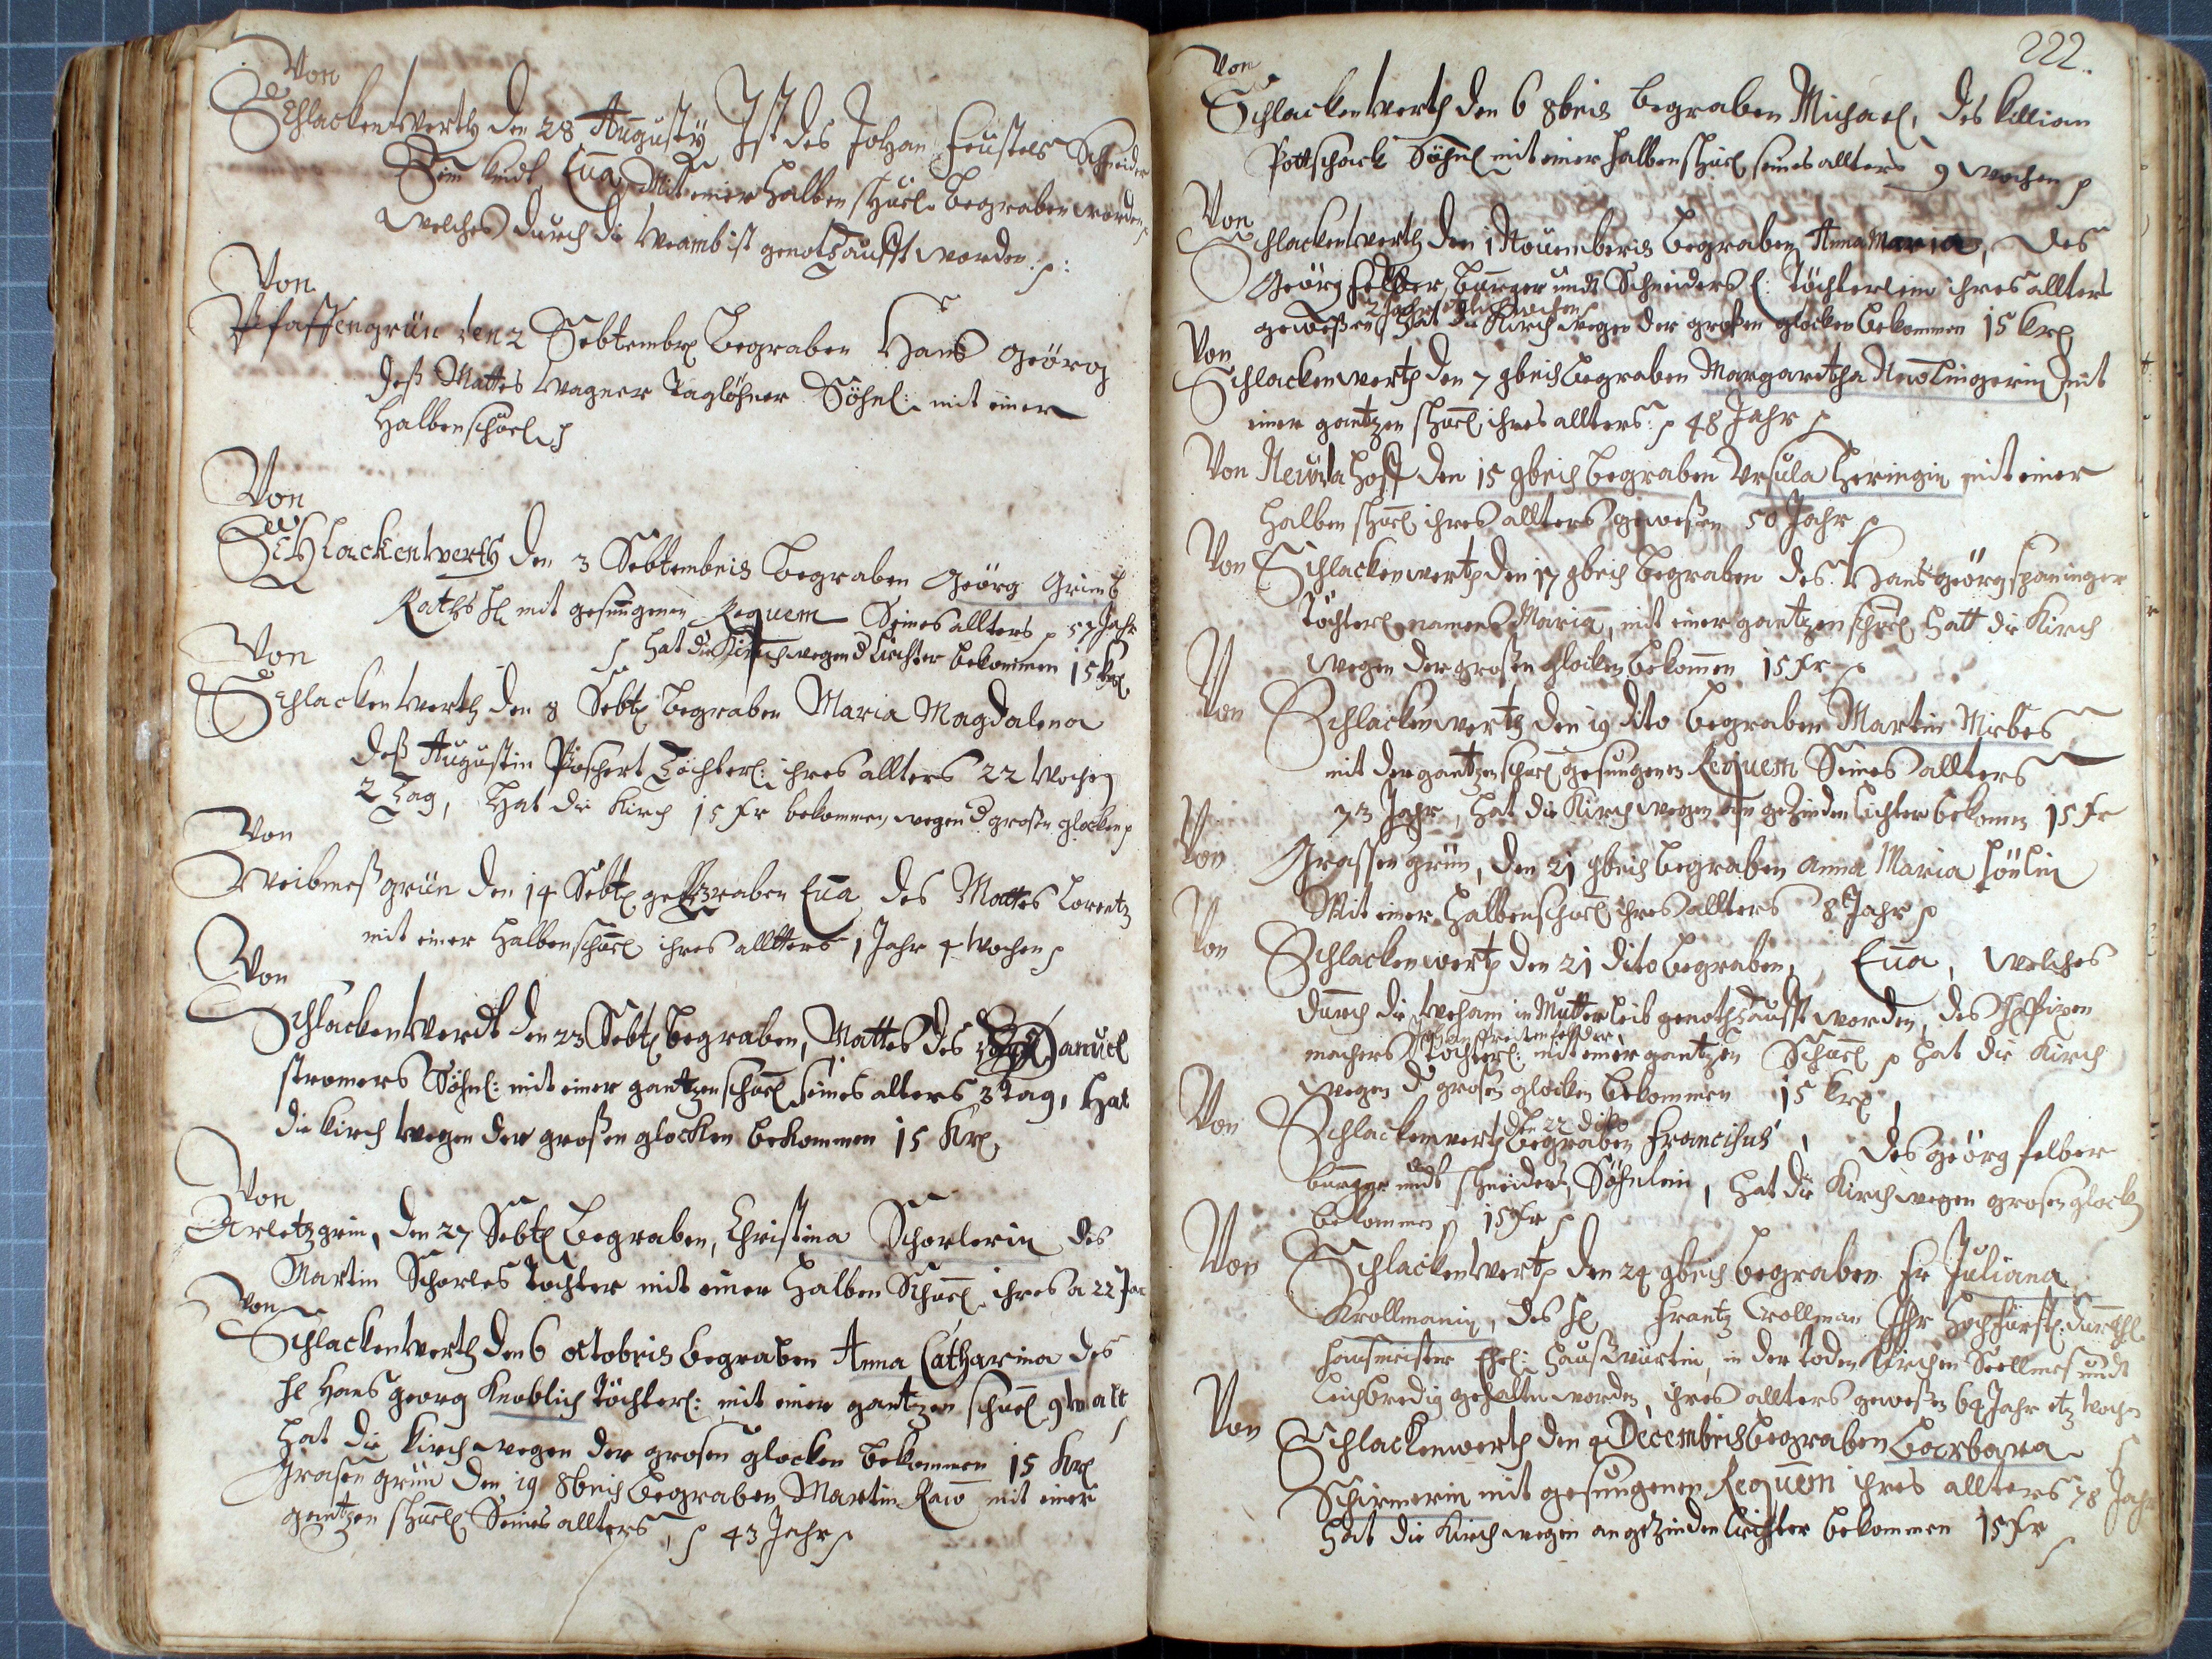 Von
Schlackenwerth den 28 Augusty Ist des Johan Feustels Schneider
Sein kindt Eua, Mit einer halben schuel begraben worden,
welches durch die weamb ist genothtaufft worden.
Von
Pfaffengrün den 2 Sebtembr begraben Hans Geörg
deß Mattes Wagner Taglöhner Söhnl: mit einer
halben schuel
Von
Schlackenwerth den 3 Sebtembris begraben Geörg Grimb
Raths H mit gesungenen Requem Seines allters 57 Jahr
hat die Kirch wegen d lichter bekommen 15 kr
Von
Schlackenwerth den 8 Sebt begraben Maria Magdalena
deß Augustin Poschert Töchterl: ihres allters 22 Wochen
2 Tag, hat die Kirch 15 kr bekommen, wegen d grosen glocken
Von
Weibmeßgrün den 14 Sebt begraben Eua des Mattes Lorentz
mit einer halben schuel ihres allters 1 Jahr 4 Wochen
Von
Schlackenwerdt den 23 Sebt begraben, Mattes des Samuel
stromers Söhnl: mit einer gantzen schuel seines alters 3 Tag, Hat
die Kirch wegen der großen glocken bekommen 15 Kr.
Von
Arletzgrin, den 27 Sebt begraben, Christina Schorlerin des
Martin Schorles Tochter mit einer halben Schuel ihres a 22 Jar
Von
Schlackenwerth den 6 octobris begraben Anna Catharina des
H Hans georg Knoblich Töchterl: mit einer gantzen schuel 9 w alt
hat die Kirch wegen der grosen glocken bekommen 15 Kr
Grasengrün den 19 8bris begraben Martin Raw mit einer
gantzen schuel Seines allters, 43 Jahr
222.
Von
Schlackenwerth den 6 8bris begraben Michael, des Killian
Pottschack Söhnl mit einer halben schuel seines allters 9 wochen
Von
Schlackenwerth den 1 Nouemberis begraben Anna Maria, des
Geörg Felber, burger undt Schneiders E: Töchterlein ihres allters
2 Jahr wochen
geweßen, hat die Kirch wegen der großen glocken bekommen 15 kr
Von
Schlackenwerth den 7 9bris begraben Margaretha mit
einer gantzen schuel, ihres allters: 48 Jahr
Von Neuda Hoff den 15 9bris begraben Vrsula Heringin mit einer
halben schuel ihres allters geweßen 50 Jahr
Von Schlackenwerth den 17 9bris begraben des Hans geörg spaninger
Töchterl namens Maria, mit einer gantzen schuel hatt die Kirch
wegen der großen glocken bekommen 15 kr
Von
Schlackenwerth den 19 dito begraben Martin Mirbes
mit der gantzen schuel gesungenen Requem Seines allters
73 Jahr, hat die Kirch wegen an gezinden lichter bekomen 15 kr
Von Grassengrün, den 21 9bris begraben anna Maria
Mit einer halben schuel ihres allters 8 Jahr
Von Schlackenwerth den 21 dito begraben, Eua, welches
durch die weham in Mutter leib genothtaufft worden, des
machers Töchterl: mit einer gantzen Schuel hat die Kirch
wegen d grosen glocken bekommen 15 kr
den 22 dito
Von Schlackenwerth begraben Franciscus, des geörg felber
burger undt schneiders, Söhnlein, hat die Kirch wegen grosen glock
bekommen 15 kr
Von Schlackenwerth den 24 9bris begraben Fr Juliana
Krollmanin, des H Frantz Crollman Ihr Hochfürstl: Durchl
hausmeister Ehel: haußwürtin, in der toden kirchen Seellmes undt
Leichbredig gehalten worden, ihres allters geweßen 64 Jahr
Von Schlackenwerth den 4 Decembris begraben Barbara
Schirmerin mit gesungenen Requem ihres allters 78 Jahr
hat die Kirch wegen angezinden lichter bekommen 15 kr